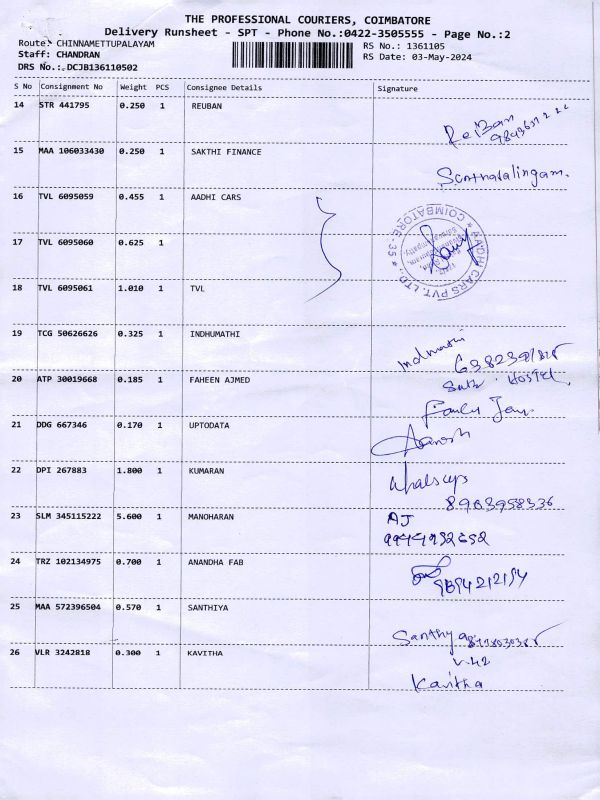 THE PROFESSIONAL COURIERS, COIMBATORE
Delivery Runsheet - SPT - Phone No.:0422-3505555 - Page No.:2
Route: CHINNAMETTUPALAYAM
RS No.: 1361105
Staff: CHANDRAN
RS Date: 03-May-2024
DRS No.: DCJB136110502
S No Consignment No Weight PCS Consignee Details Signature
14 STR 441795 0.250 1 REUBAN
15 MAA 106033430 0.250 1 SAKTHI FINANCE
16 TVL 6095059 0.455 1 AADHI CARS
AADHI CARS PVT. LTD., * COIMBATORE - 35 *
17 TVL 6095060 0.625 1
18 TVL 6095061 1.010 1 TVL
19 TCG 50626626 0.325 1 INDHUMATHI
20 ATP 30019668 0.185 1 FAHEEN AJMED
Hostel
21 DDG 667346 0.170 1 UPTODATA
22 DPI 267883 1.800 1 KUMARAN
8903958336
23 SLM 345115222 5.600 1 MANOHARAN AJ
24 TRZ 102134975 0.700 1 ANANDHA FAB
9894212154
25 MAA 572396504 0.570 1 SANTHIYA
Santhya
26 VLR 3242818 0.300 1 KAVITHA
Kavitha